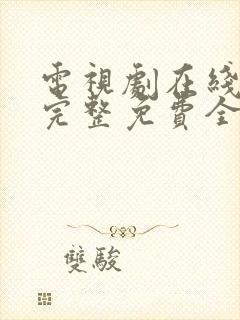 電視劇在綫
完整免費全
雙駿